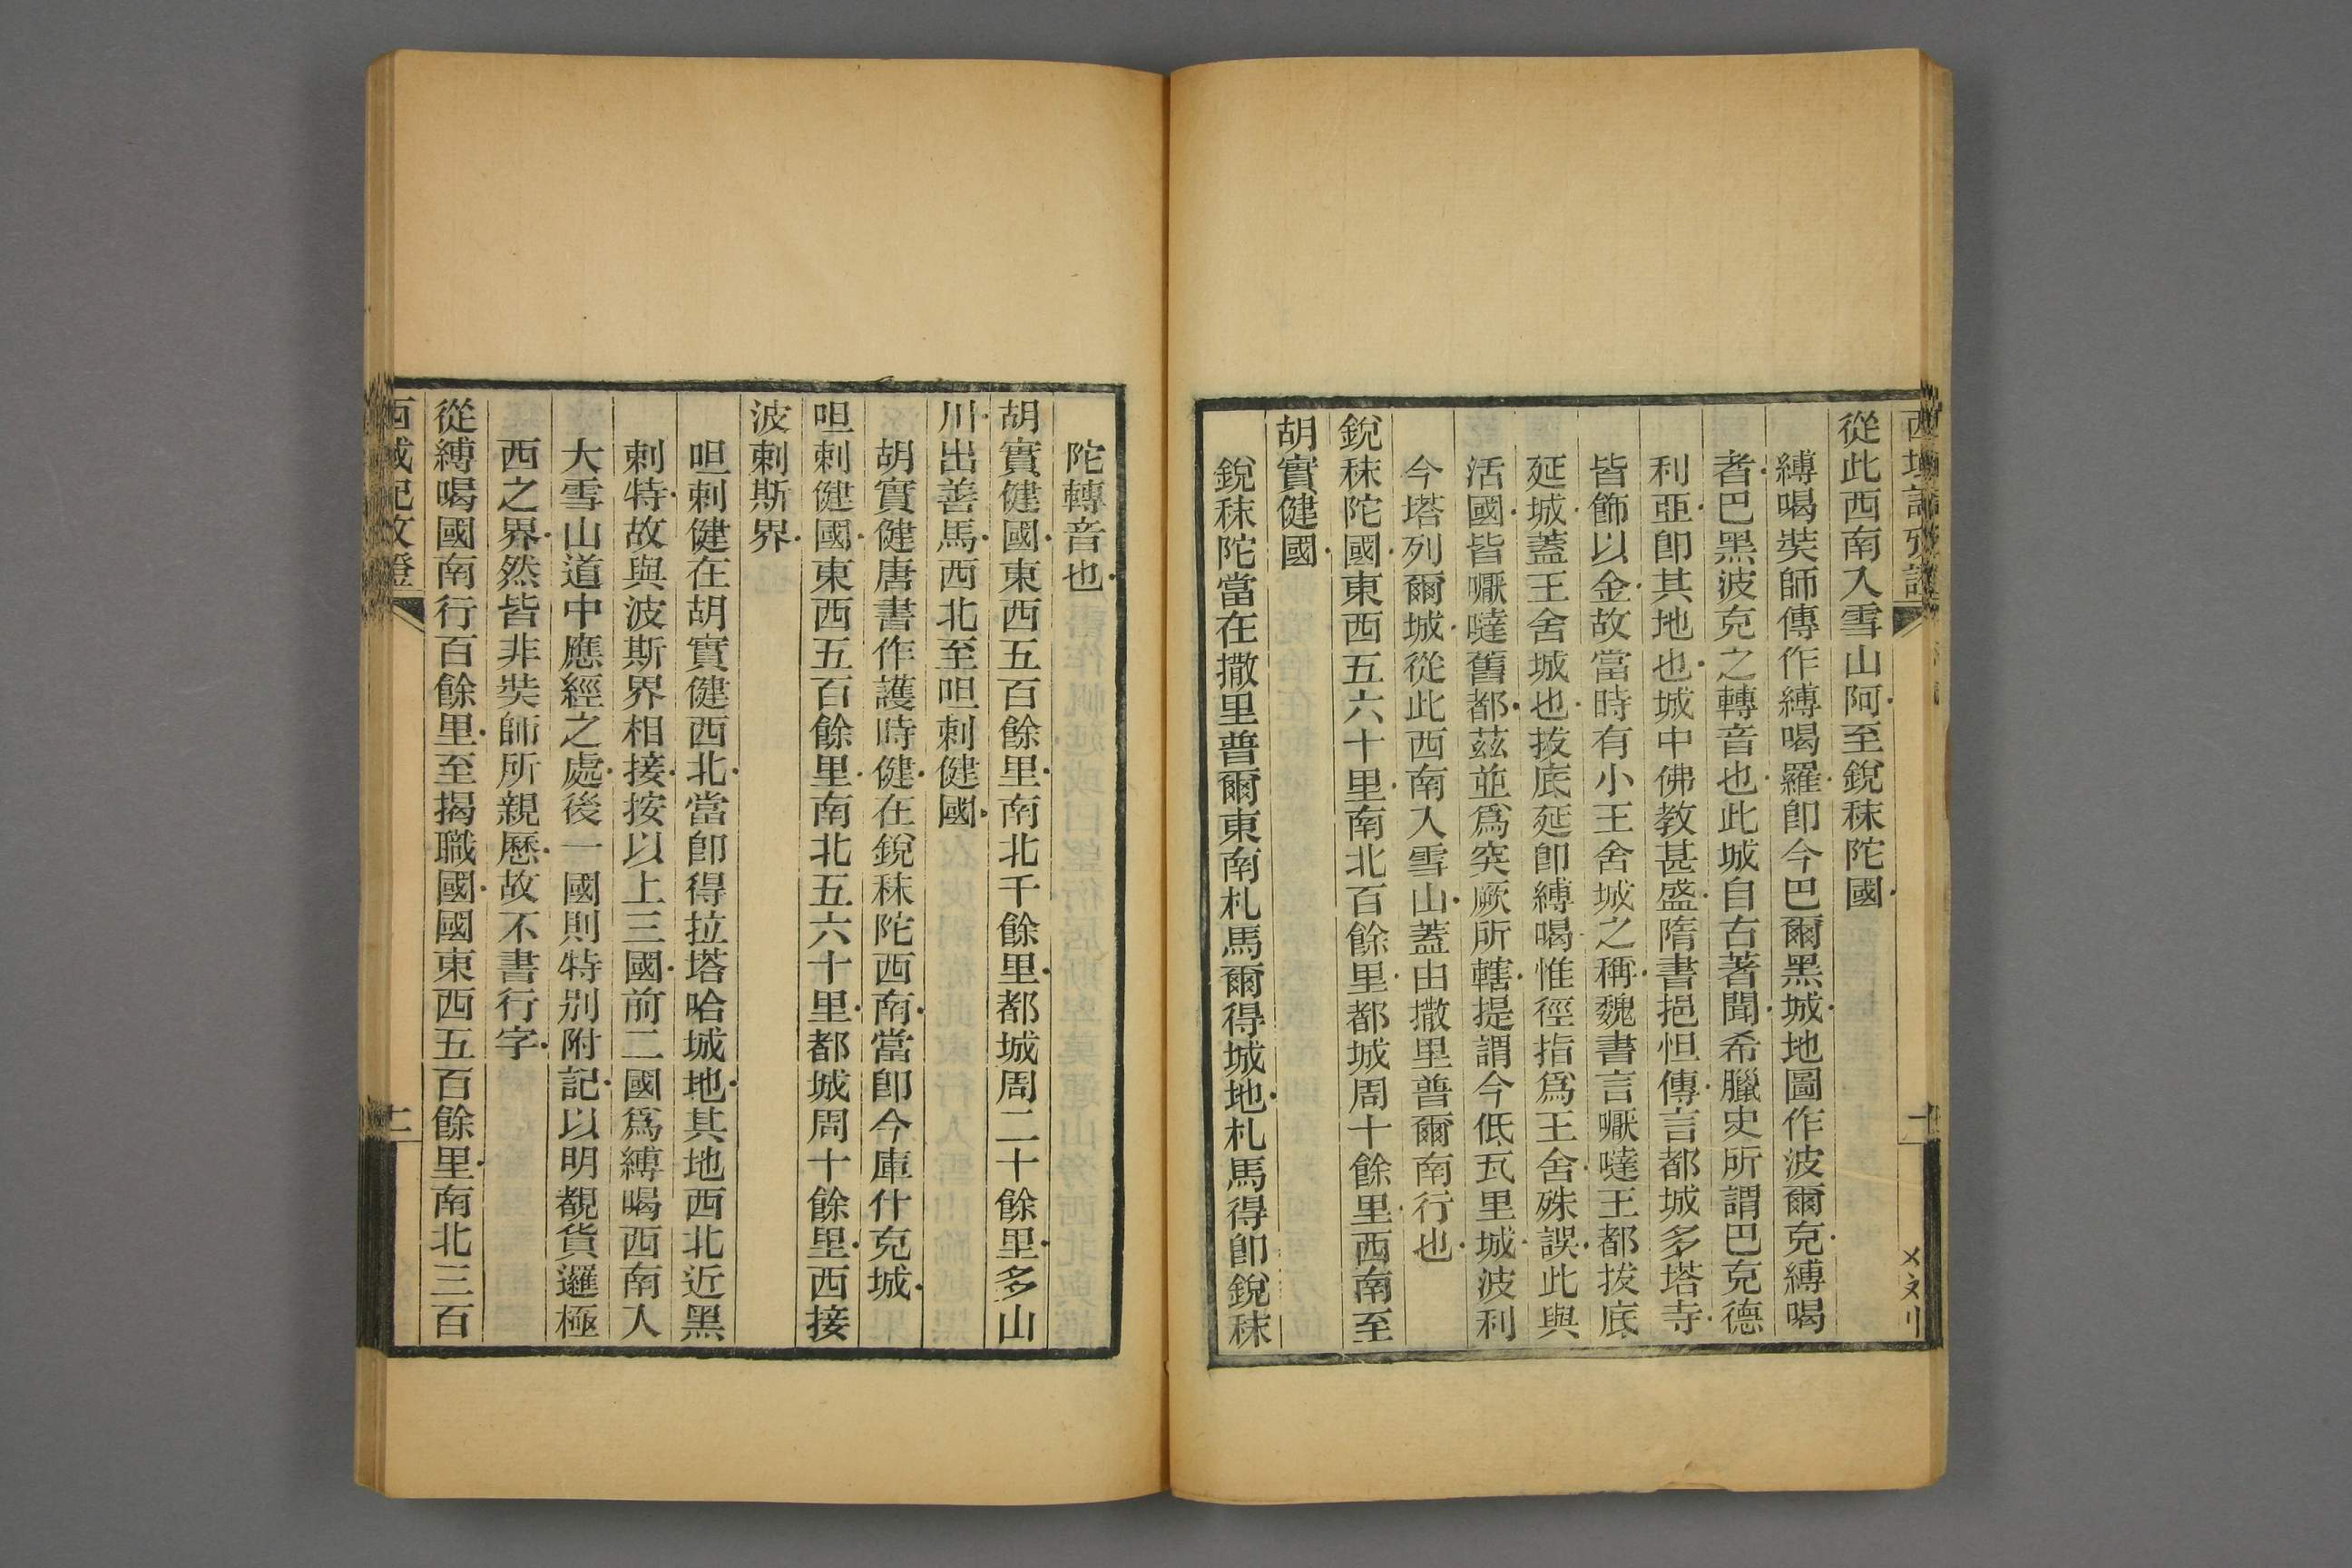 從此西南入雪山阿至銳秣陀國
縛喝奘師傳作縛喝羅卽今巴爾黑城地圖作波爾克縛喝
者巴黑波克之轉音也此城自古著聞希臘史所謂巴克德
利亞卽其地也城中佛教甚盛隋書挹怛傳言都城多塔寺
皆飾以金故當時有小王舍城之稱魏書言嚈噠王都拔底
延城蓋王舍城也拔底延卽縛喝惟徑指爲王舍殊誤此與
活國皆嚈噠舊都茲並爲突厥所轄提謂今低瓦里城波利
今塔列爾城從此西南入雪山蓋由撒里普爾南行也
銳秣陀國東西五六十里南北百餘里都城周十餘里西南至
胡實健國
銳秣陀當在撒里普爾東南札馬爾得城地札馬得卽銳秣
陀轉音也
胡實健國東西五百餘里南北千餘里都城周二十餘里多山
川出善馬西北至呾剌健國
胡實健唐書作護時健在銳秣陀西南當卽今庫什克城
呾剌健國東西五百餘里南北五六十里都城周十餘里西接
波剌斯界
呾剌健在胡實健西北當卽得拉塔哈城地其地西北近黑
剌特故與波斯界相接按以上三國前二國爲縛喝西南入
大雪山道中應經之處後一國則特別附記以明覩貨邏極
西之界然皆非奘師所親歷故不書行字
從縛喝國南行百餘里至揭職國國東西五百餘里南北三百